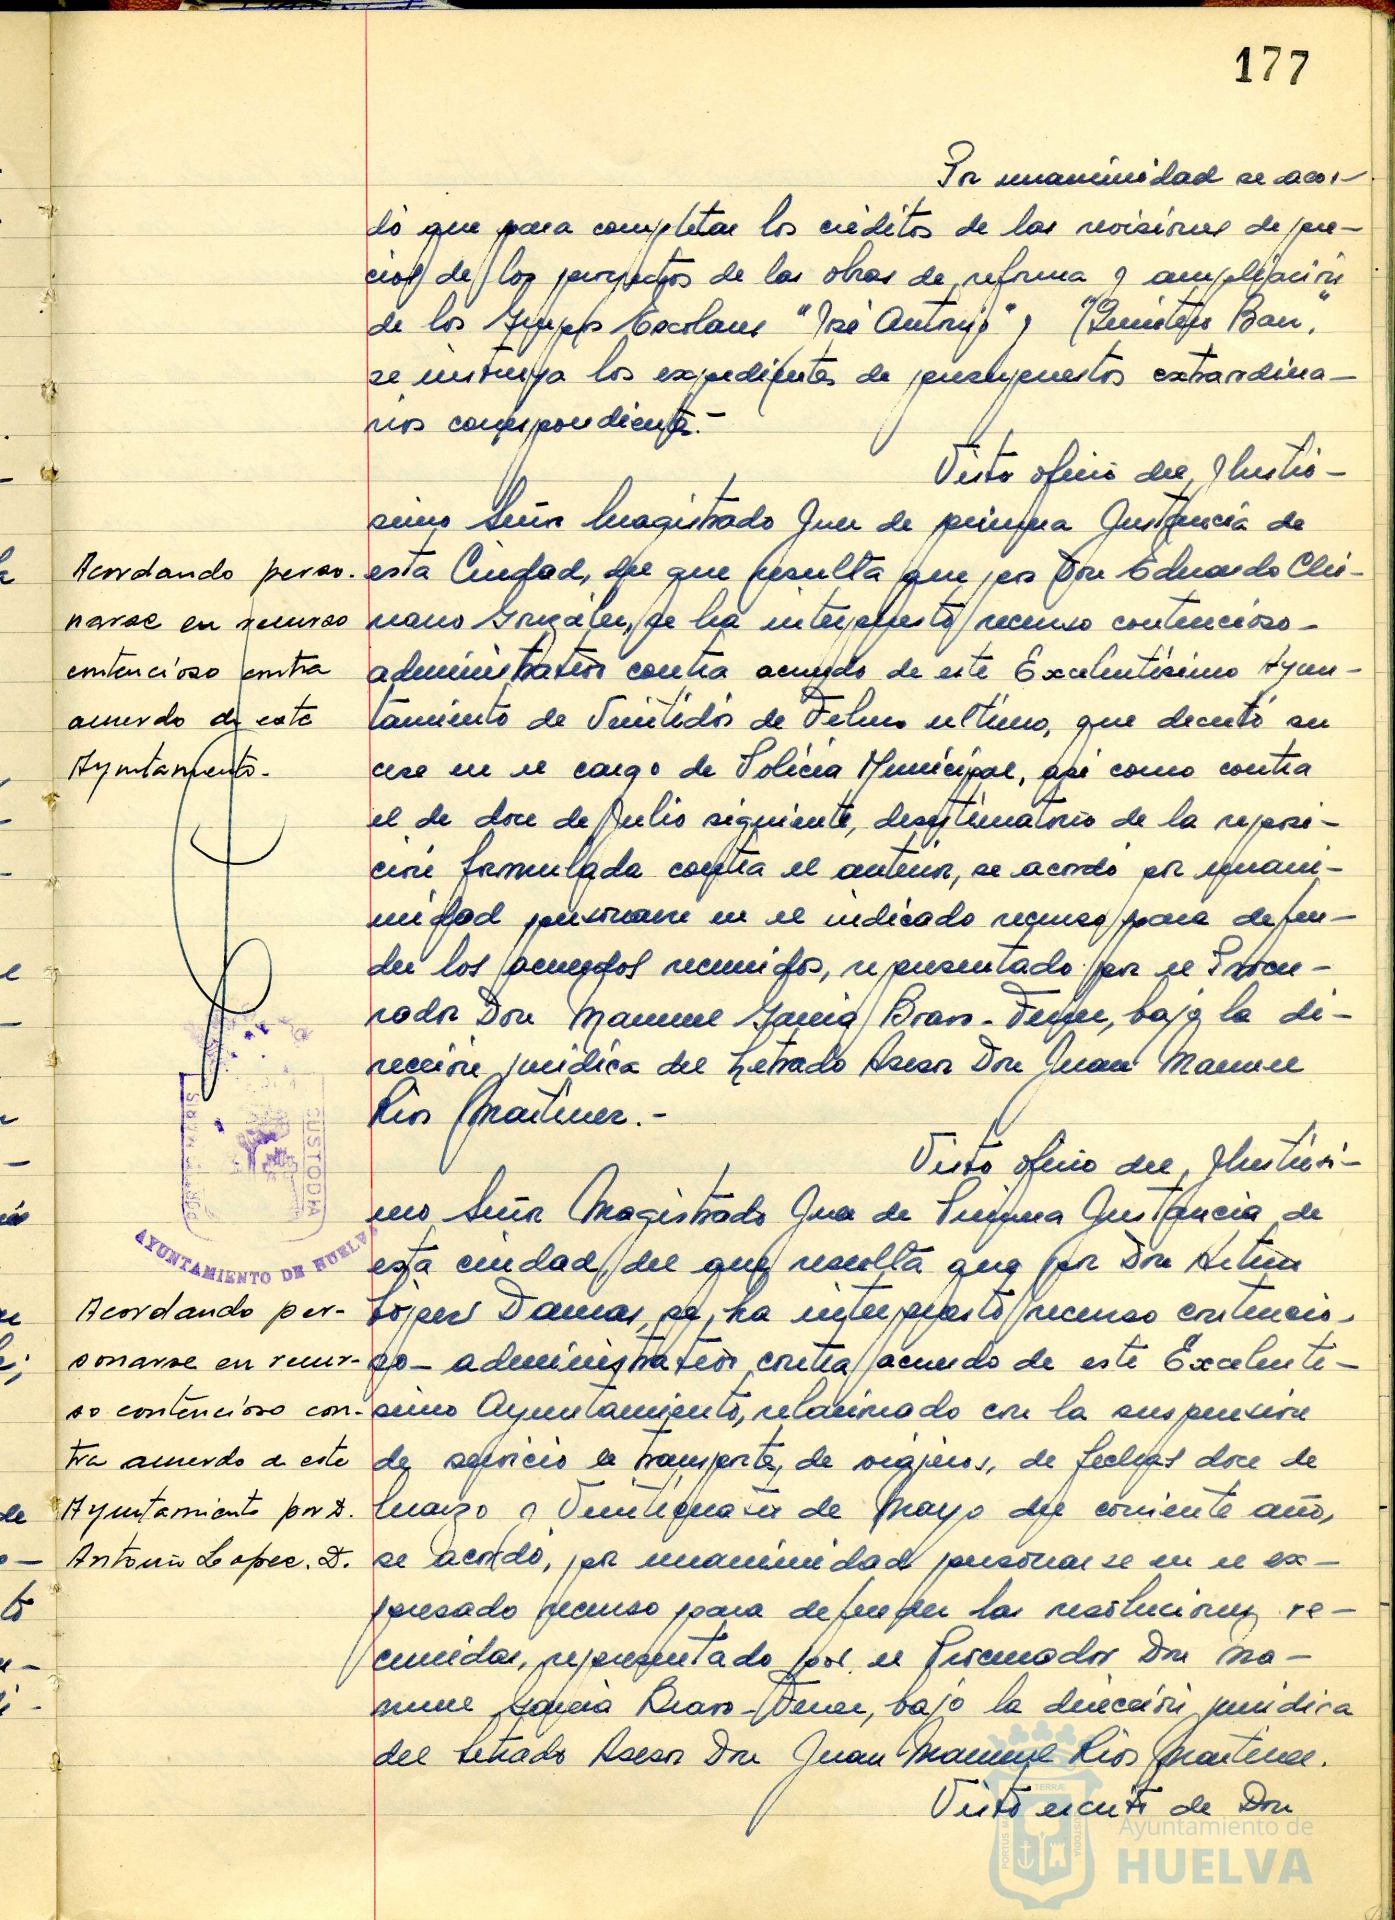 177
Por unanimidad se acor-
dó que para completar los créditos de las revisiones de pre-
cios de los proyectos de las obras de reforma y ampliación
de los Grupos Escolares "José Antonio" y "Quintero Baez,"
se instruya los expedientes de presupuestos extraordina-
rios correspondientes.-
Visto oficio del Ilustrí-
simo Señor Magistrado Juez de primera Instancia de
esta Ciudad, del que resulta que por Don Eduardo
González, se ha interpuesto recurso contencioso-
administrativo contra acuerdo de este Excelentísimo Ayun-
tamiento de Veintidós de Febrero último, que decretó su
cese en el cargo de Policía Municipal, así como contra
el de doce de Julio siguiente, desestimatorio de la reposi-
ción formulada contra el anterior, se acordó por unani-
midad personarse en el indicado recurso para defen-
der los acuerdos recurridos, representado por el Procu-
rador Don Manuel García Bravo-Ferrer, bajo la di-
rección jurídica del Letrado Asesor Don Juan Manuel
Ríos Martínez.-
Visto oficio del Ilustrísi-
mo Señor Magistrado Juez de Primera Instancia de
esta ciudad, del que resulta que por Don
López Damas, se ha interpuesto recurso contencio-
so-administrativo contra acuerdo de este Excelentí-
simo Ayuntamiento, relacionado con la suspensión
de servicio de transporte, de viajeros, de fechas doce de
Marzo y Veinticuatro de Mayo del corriente año,
se acordó, por unanimidad personarse en el ex-
presado recurso para defender las resoluciones re-
curridas, representado por el Procurador Don Ma-
nuel García Bravo-Ferrer, bajo la dirección jurídica
del Letrado Asesor Don Juan Manuel Ríos Martínez.
Visto escrito de Don
Acordando perso-
narse en recurso
contencioso contra
acuerdo de este
Ayuntamiento.
PORTUS MARIS
CUSTODIA
AYUNTAMIENTO DE HUELVA
Acordando per-
sonarse en recur-
so contencioso con-
tra acuerdo de este
Ayuntamiento por D.
Antonio Lopez. D.
Ayuntamiento de
HUELVA